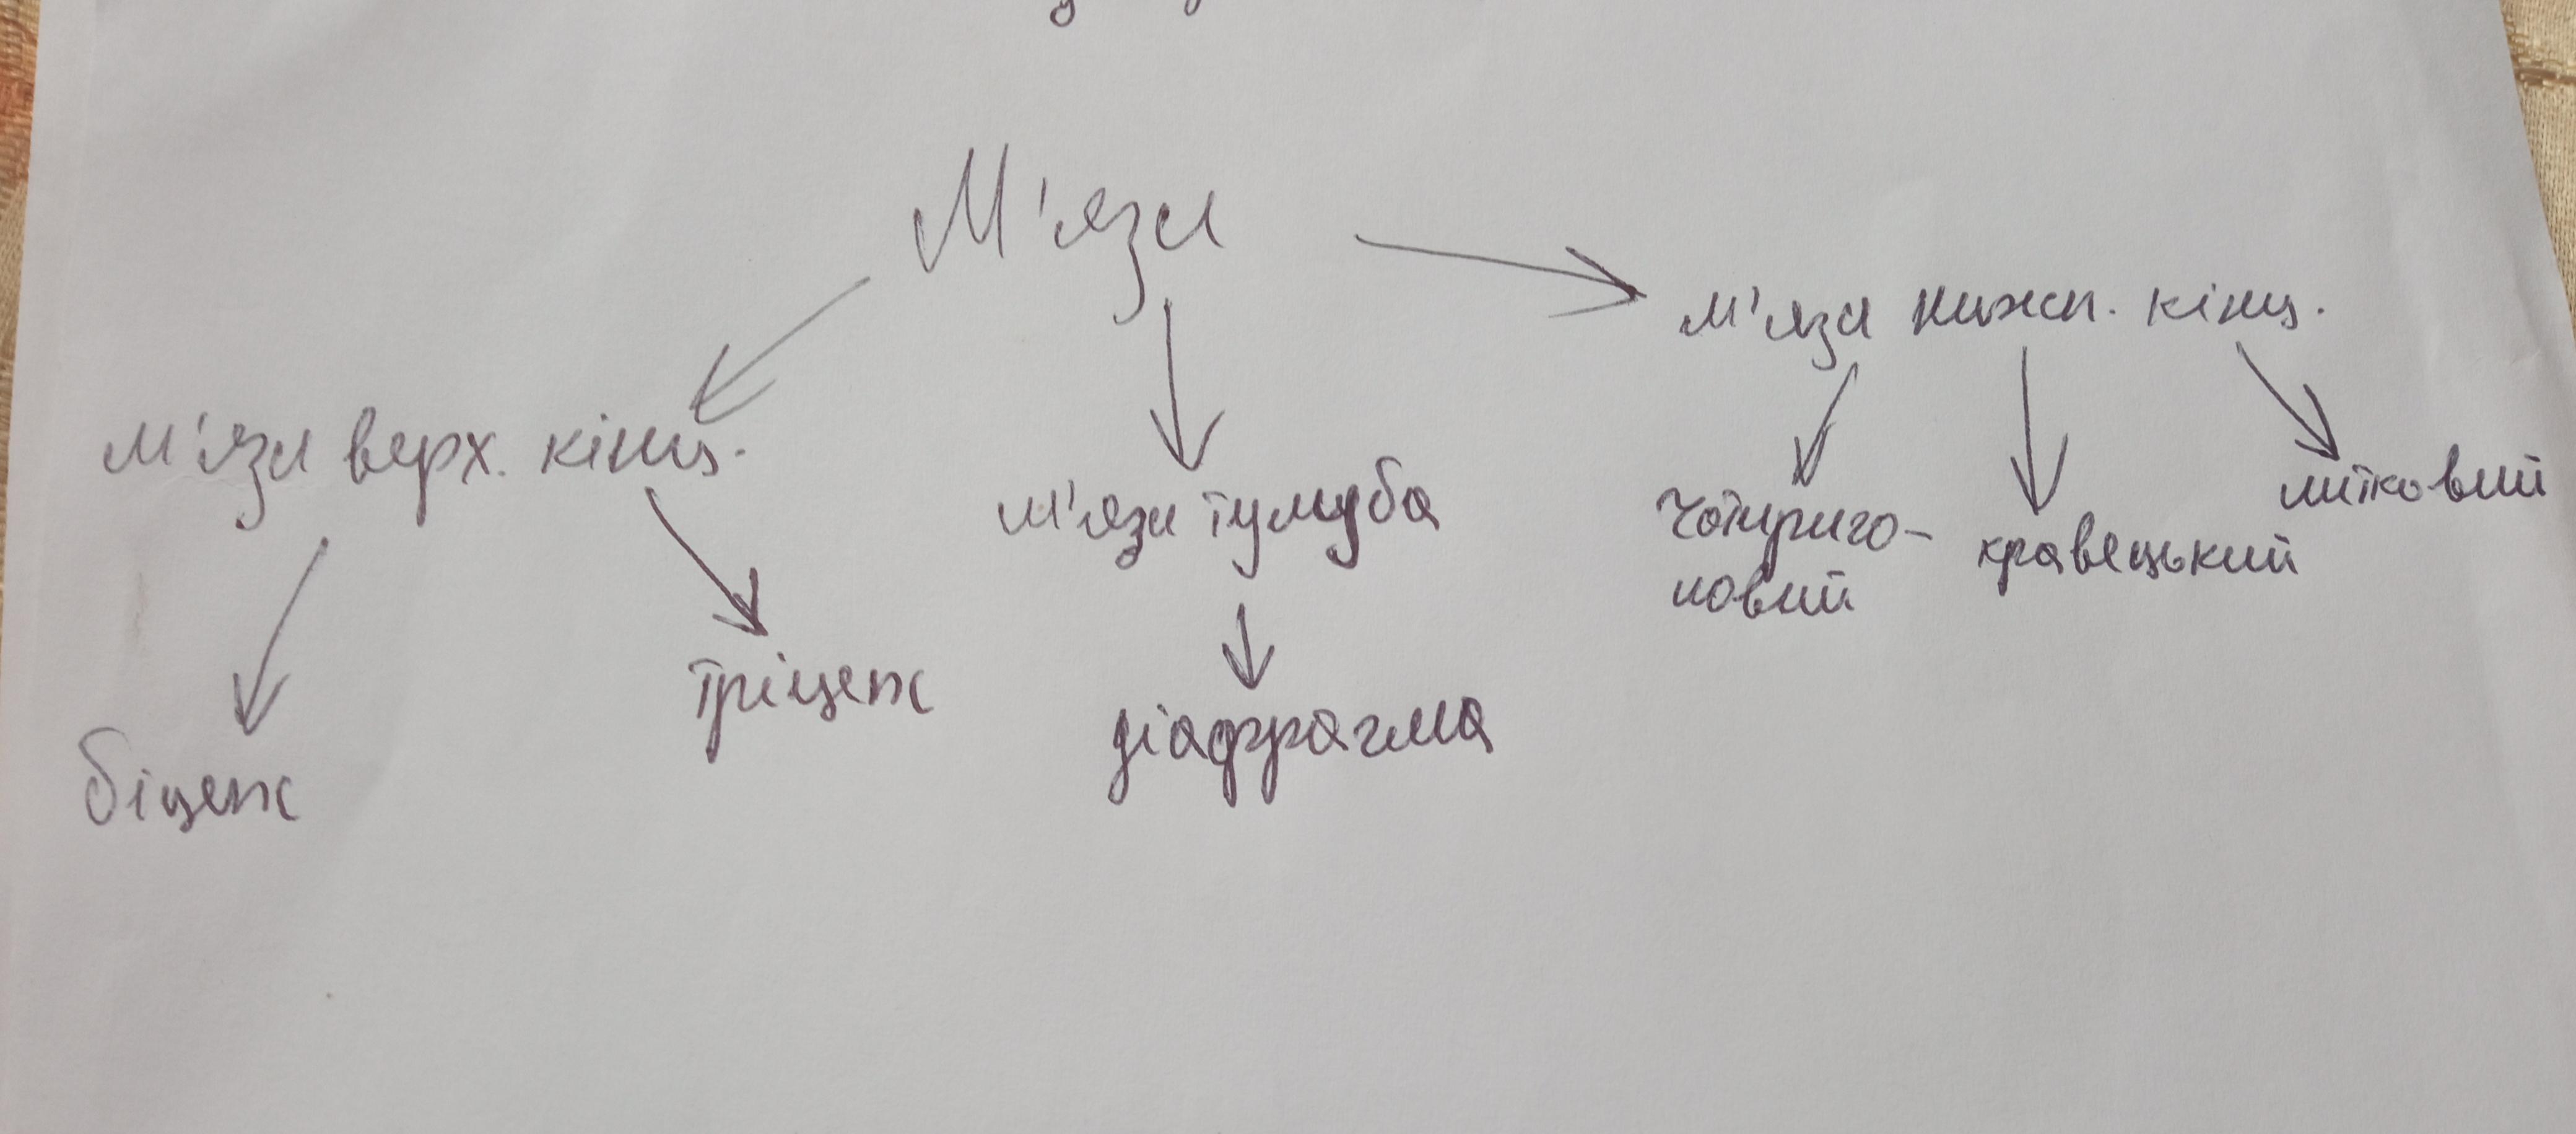 М'язи
м'язи верх. кінц.
біцепс
тріцепс
м'язи тулуба
діафрагма
м'язи нижн. кінц.
чотириго-
ловий
кравецький
литковий